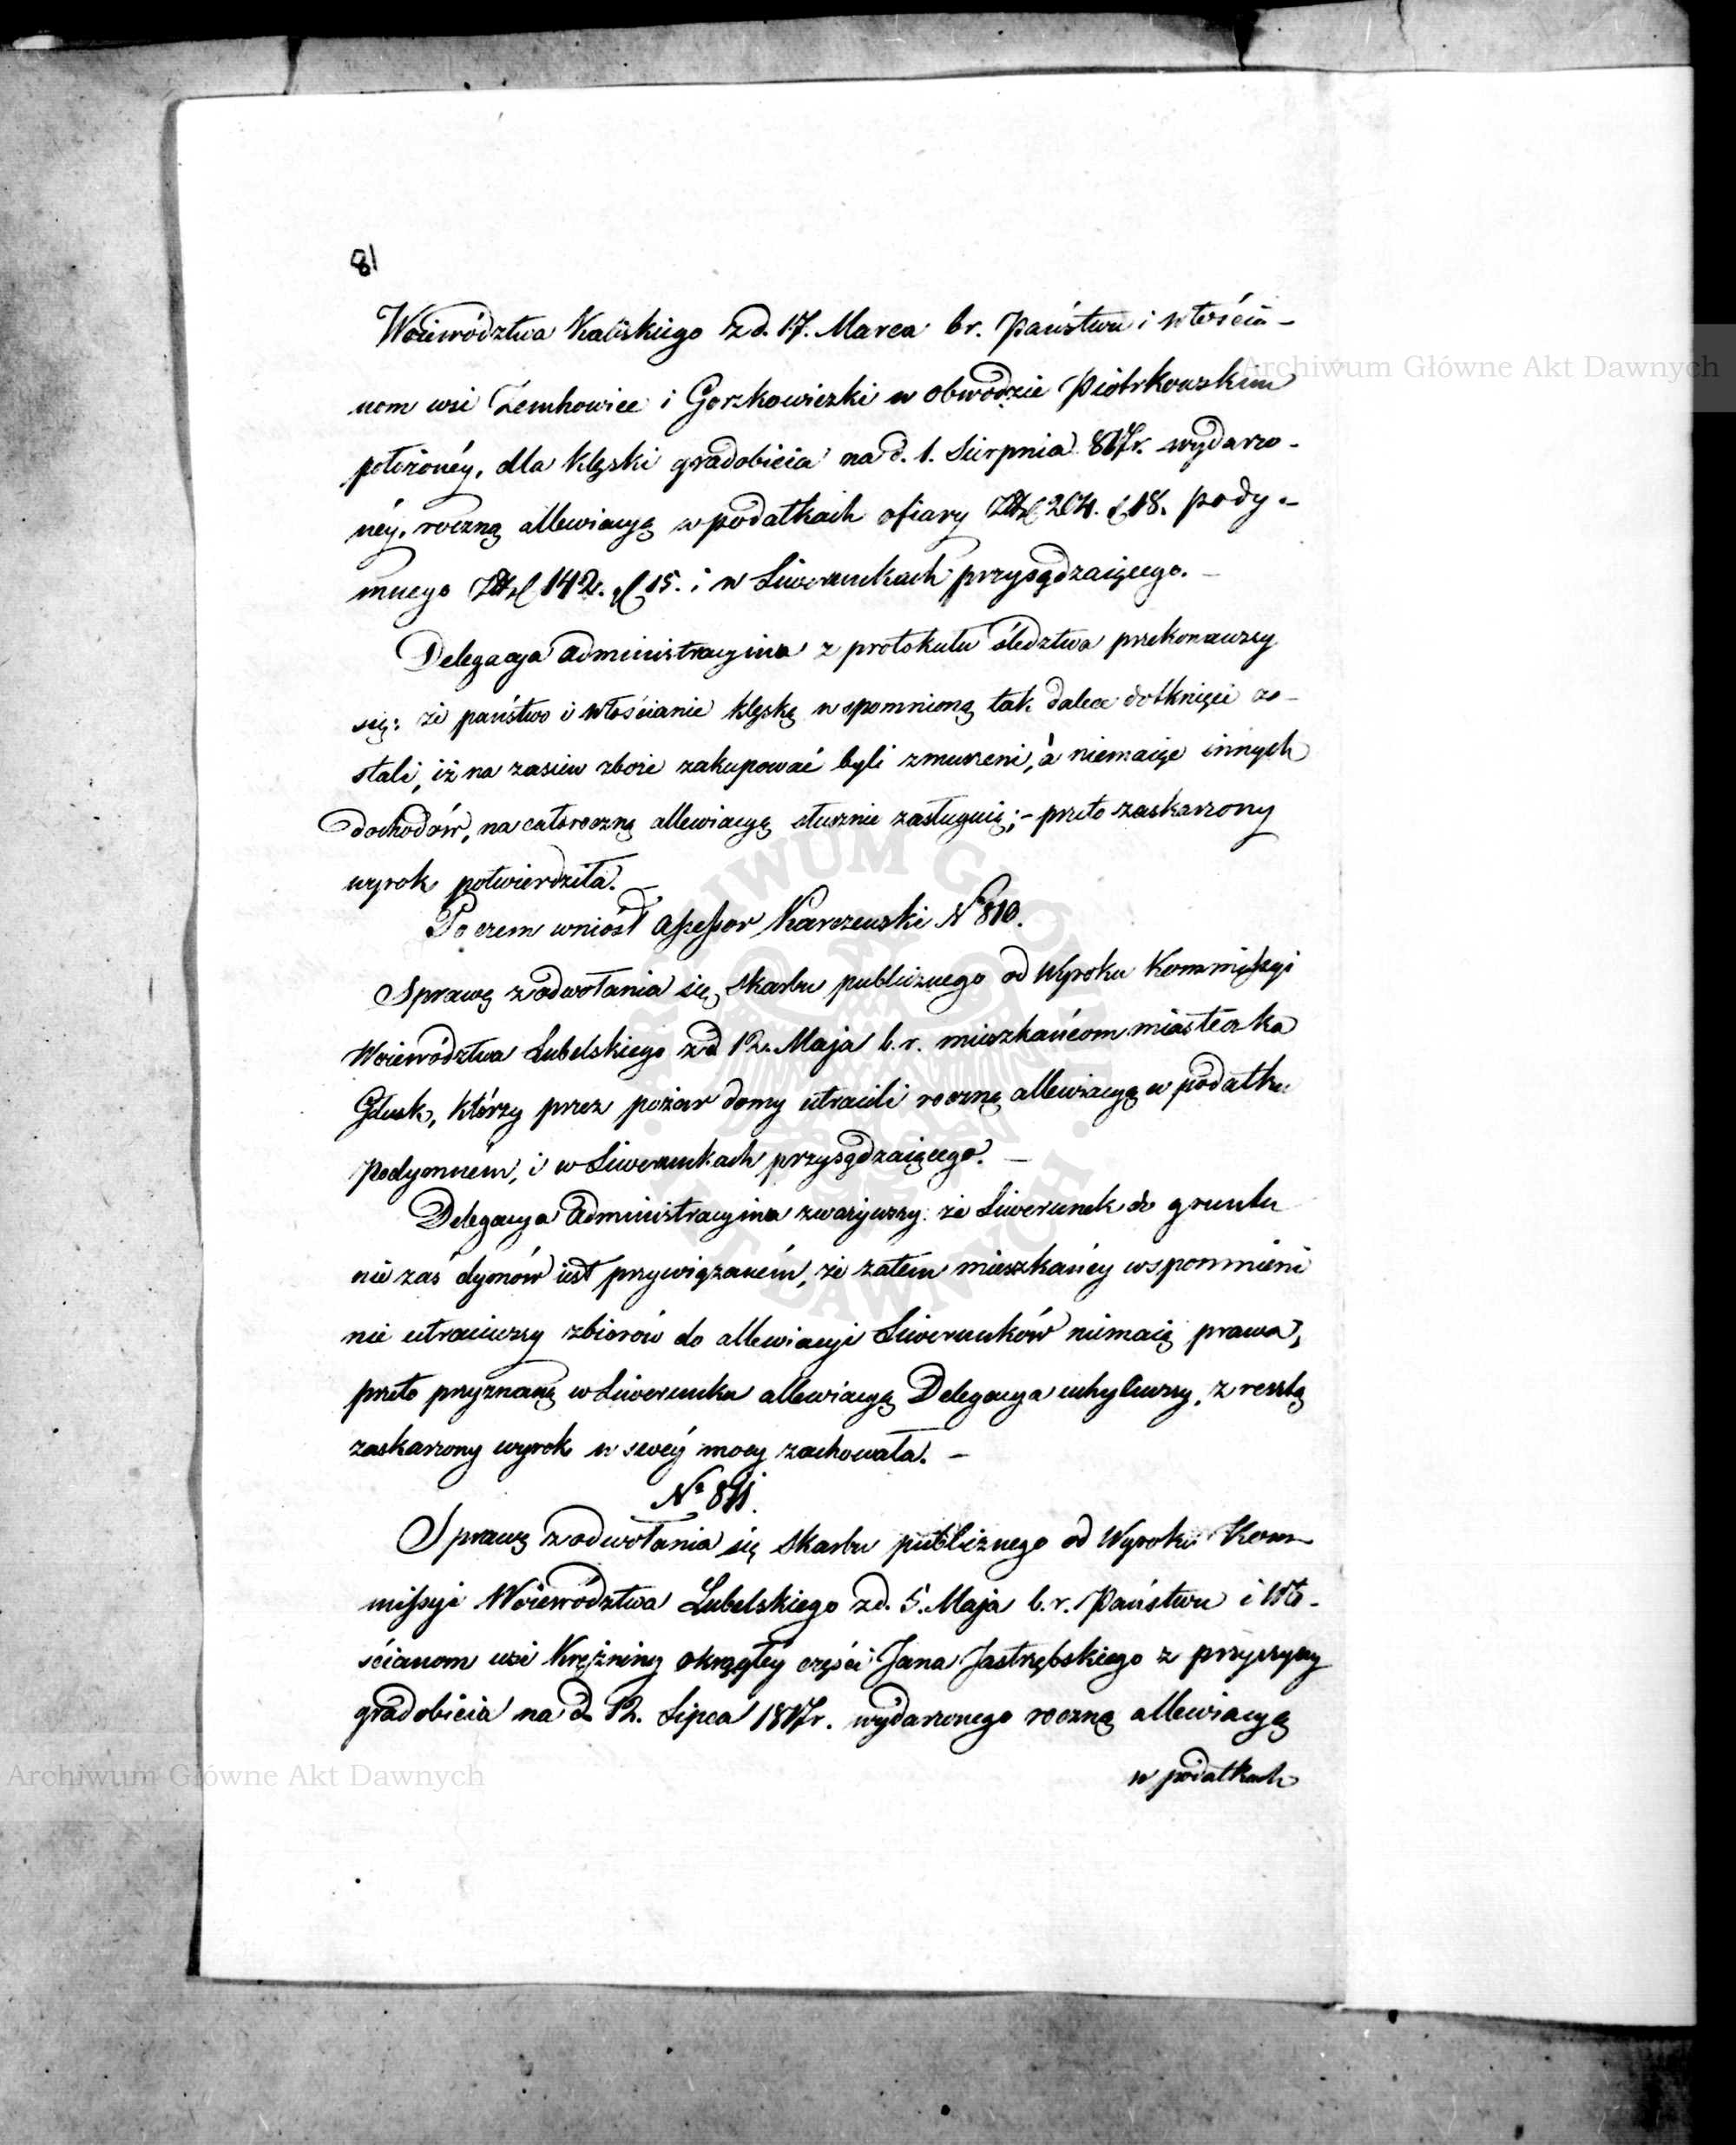 81
Woiewództwa Kaliskiego z d. 17. Marca br. Państwu i włościa-
nom wsi Żeuchowice i Gorzkowiczki w obwodzie Piotrkowskim
położonéy, dla klęski gradobicia na d. 1. Sierpnia 817r. wydarzo-
néy, roczną allewiacyą w podatkach ofiary 204. 18. pody-
mnego 142. 15. i w Liwerunkach przysądzaiącego. —
Delegacya administracyina z protokułu śledztwa przekonawszy
się: że państwo i włościanie klęską wspomnioną tak dalece dotknięci zo-
stali, iż na zasiew zboże zakupować byli zmuszeni, a niemaiąc innych
dochodów, na całoroczną allewiacyą słusznie zasługuią; — przeto zaskarzony
wyrok potwierdziła.
Poczem wniósł assessor Karczewski Nº 810.
Sprawę z odwołania się Skarbu publicznego od Wyroku Kommissyi
Woiewództwa Lubelskiego z d 12. Maja b.r. mieszkańcom miasteczka
Głusk, którzy przez pożar domy utracili roczną allewiacyą w podatku
Podymném, i w Liwerunkach przysądzaiącego. —
Delegacya administracyina zważywszy: że Liwerunek do gruntu
nie zaś dymów iest przywiązaném, że zatem mieszkańcy wspomnieni
nie utraciwszy zbiorów do allewiacyi Liwerunków niemaią prawa,
przeto przyznaną w Liwerunku allewiacyą Delegacya uchyliwszy, z resztą
zaskarzony wyrok w swéy mocy zachowała. —
Nº 811.
Sprawę z odwołania się Skarbu publicznego od Wyroku Kom-
missyi Woiewództwa Lubelskiego z d. 5. Maja b.r. Państwu i Wło-
ścianom wsi Krężniny okrągłéy części Jana Jastrzębskiego z przyczyny
gradobicia na d 12. Lipca 1817r. wydarzonego roczną allewiacyą
w podatkach
Archiwum Główne Akt Dawnych
Archiwum Główne Akt Dawnych
ARCHIWUM GŁÓWNE AKT DAWNYCH